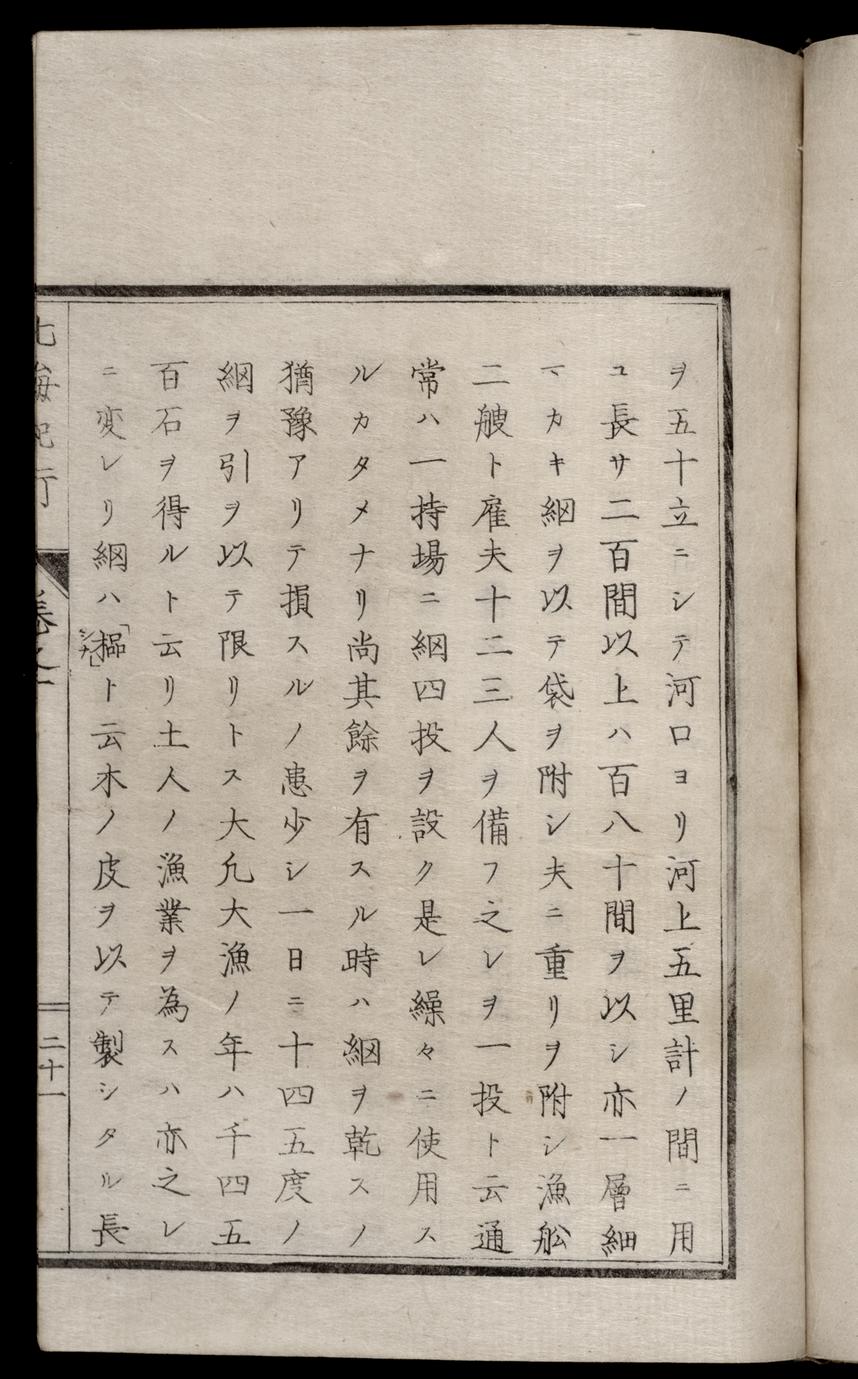 ヲ五十立ニシテ河口ヨリ河上五里計ノ間ニ用
ユ長サ二百間以上ハ百八十間ヲ以シ亦一層細
マカキ網ヲ以テ袋ヲ附シ夫ニ重リヲ附シ漁舩
二艘ト雇夫十二三人ヲ備フ之レヲ一投ト云通
常ハ一持場ニ網四投ヲ設ク是レ繰々ニ使用ス
ルカタメナリ尚其餘ヲ有スル時ハ網ヲ乾スノ
猶豫アリテ損スルノ患少シ一日ニ十四五度ノ
網ヲ引ヲ以テ限リトス大凢大漁ノ年ハ千四五
百石ヲ得ルト云リ土人ノ漁業ヲ為スハ亦之レ
ニ変レリ網ハ「榀ト云木ノ皮ヲ以テ製シタル長
シナ」
北海紀行
巻之一
二十一